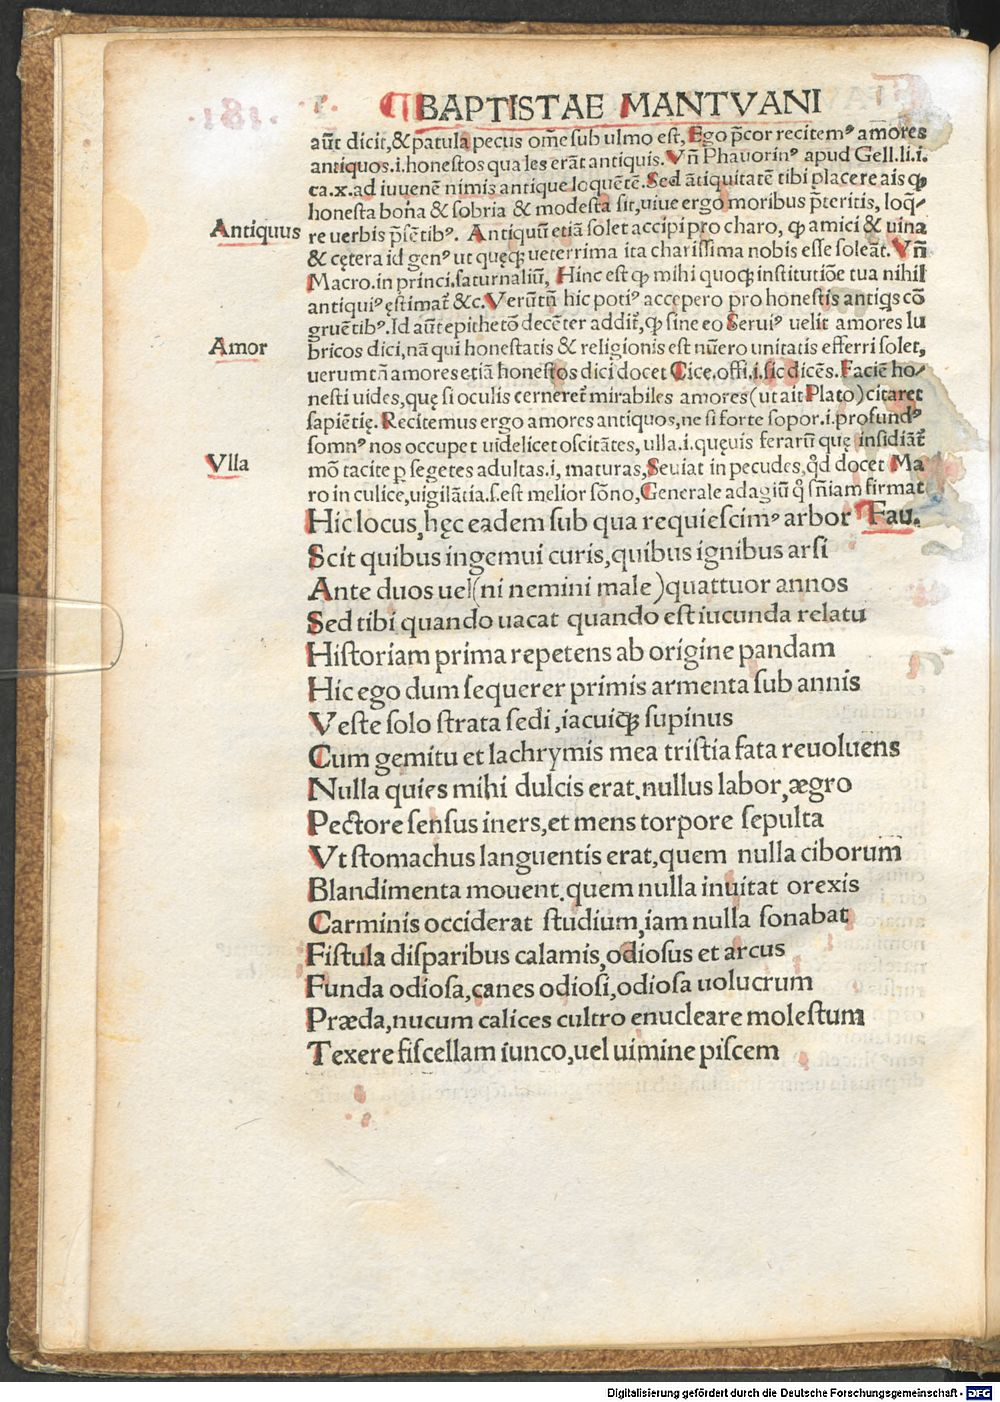 ¶ BAPTISTAE MANTVANI
aūt dicit,&patula pecus om̄e sub ulmo est, Ego p̄cor recitemꝰ amores
antiquos.i.honestos quales erāt antiquis. Vñ Phauorinꝰ apud Gell.li.i.
ca.x.ad iuuenē nimis antique loquētē.Sed ātiquitatē tibi placere ais ꝙ
honesta bona & sobria & modesta sit,uiue ergo moribus p̄teritis, loq̄-
Antiquus re uerbis p̄sētibꝰ. Antiquū etiā solet accipi pro charo, ꝙ amici & uina
& cętera id genꝰ ut quęqꝫ ueterrima ita charissima nobis esse soleāt. Vñ
Macro.in princi.saturnaliū, Hinc est ꝙ mihi quoqꝫ institutiōe tua nihil
antiquiꝰ ęstimat̄ &c.Verūtñ hic potiꝰ accępero pro honestis antiqs cō
gruētibꝰ.Id aūt epithetō decēter addit̄,ꝙ sine eo Seruiꝰ uelit amores lu
Amor bricos dici,nā qui honestatis & religionis est nūero unitatis efferri solet,
uerum tñ amores etiā honestos dici docet Cice.offi.i.sic dicēs.Faciē ho-
nesti uides,quę si oculis cerneret̄ mirabiles amores(ut ait Plato)citaret
sapiētię. Recitemus ergo amores antiquos,ne si forte sopor.i.profundꝰ
somnꝰ nos occupet uidelicet oscitātes, ulla.i.quęuis ferarū quę insidiāt̄
Vlla mō tacite ꝑ segetes adultas.i, maturas,Seuiat in pecudes,qd̄ docet Ma
ro in culice,uigilātia.s.est melior sōno,Generale adagiū q̄ sñiam firmat
Hic locus,hęc eadem sub qua requiescimꝰ arbor Fau.
Scit quibus ingemui curis,quibus ignibus arsi
Ante duos uel(ni nemini male)quattuor annos
Sed tibi quando uacat quando est iucunda relatu
Historiam prima repetens ab origine pandam
Hic ego dum sequerer primis armenta sub annis
Veste solo strata sedi,iacuiqꝫ supinus
Cum gemitu et lachrymis mea tristia fata reuoluens
Nulla quies mihi dulcis erat.nullus labor,ægro
Pectore sensus iners,et mens torpore sepulta
Vt stomachus languentis erat,quem nulla ciborum
Blandimenta mouent.quem nulla inuitat orexis
Carminis occiderat studium,iam nulla sonabat
Fistula disparibus calamis,odiosus et arcus
Funda odiosa,canes odiosi,odiosa uolucrum
Præda,nucum calices cultro enucleare molestum
Texere fiscellam iunco,uel uimine piscem
Digitalisierung gefördert durch die Deutsche Forschungsgemeinschaft - DFG